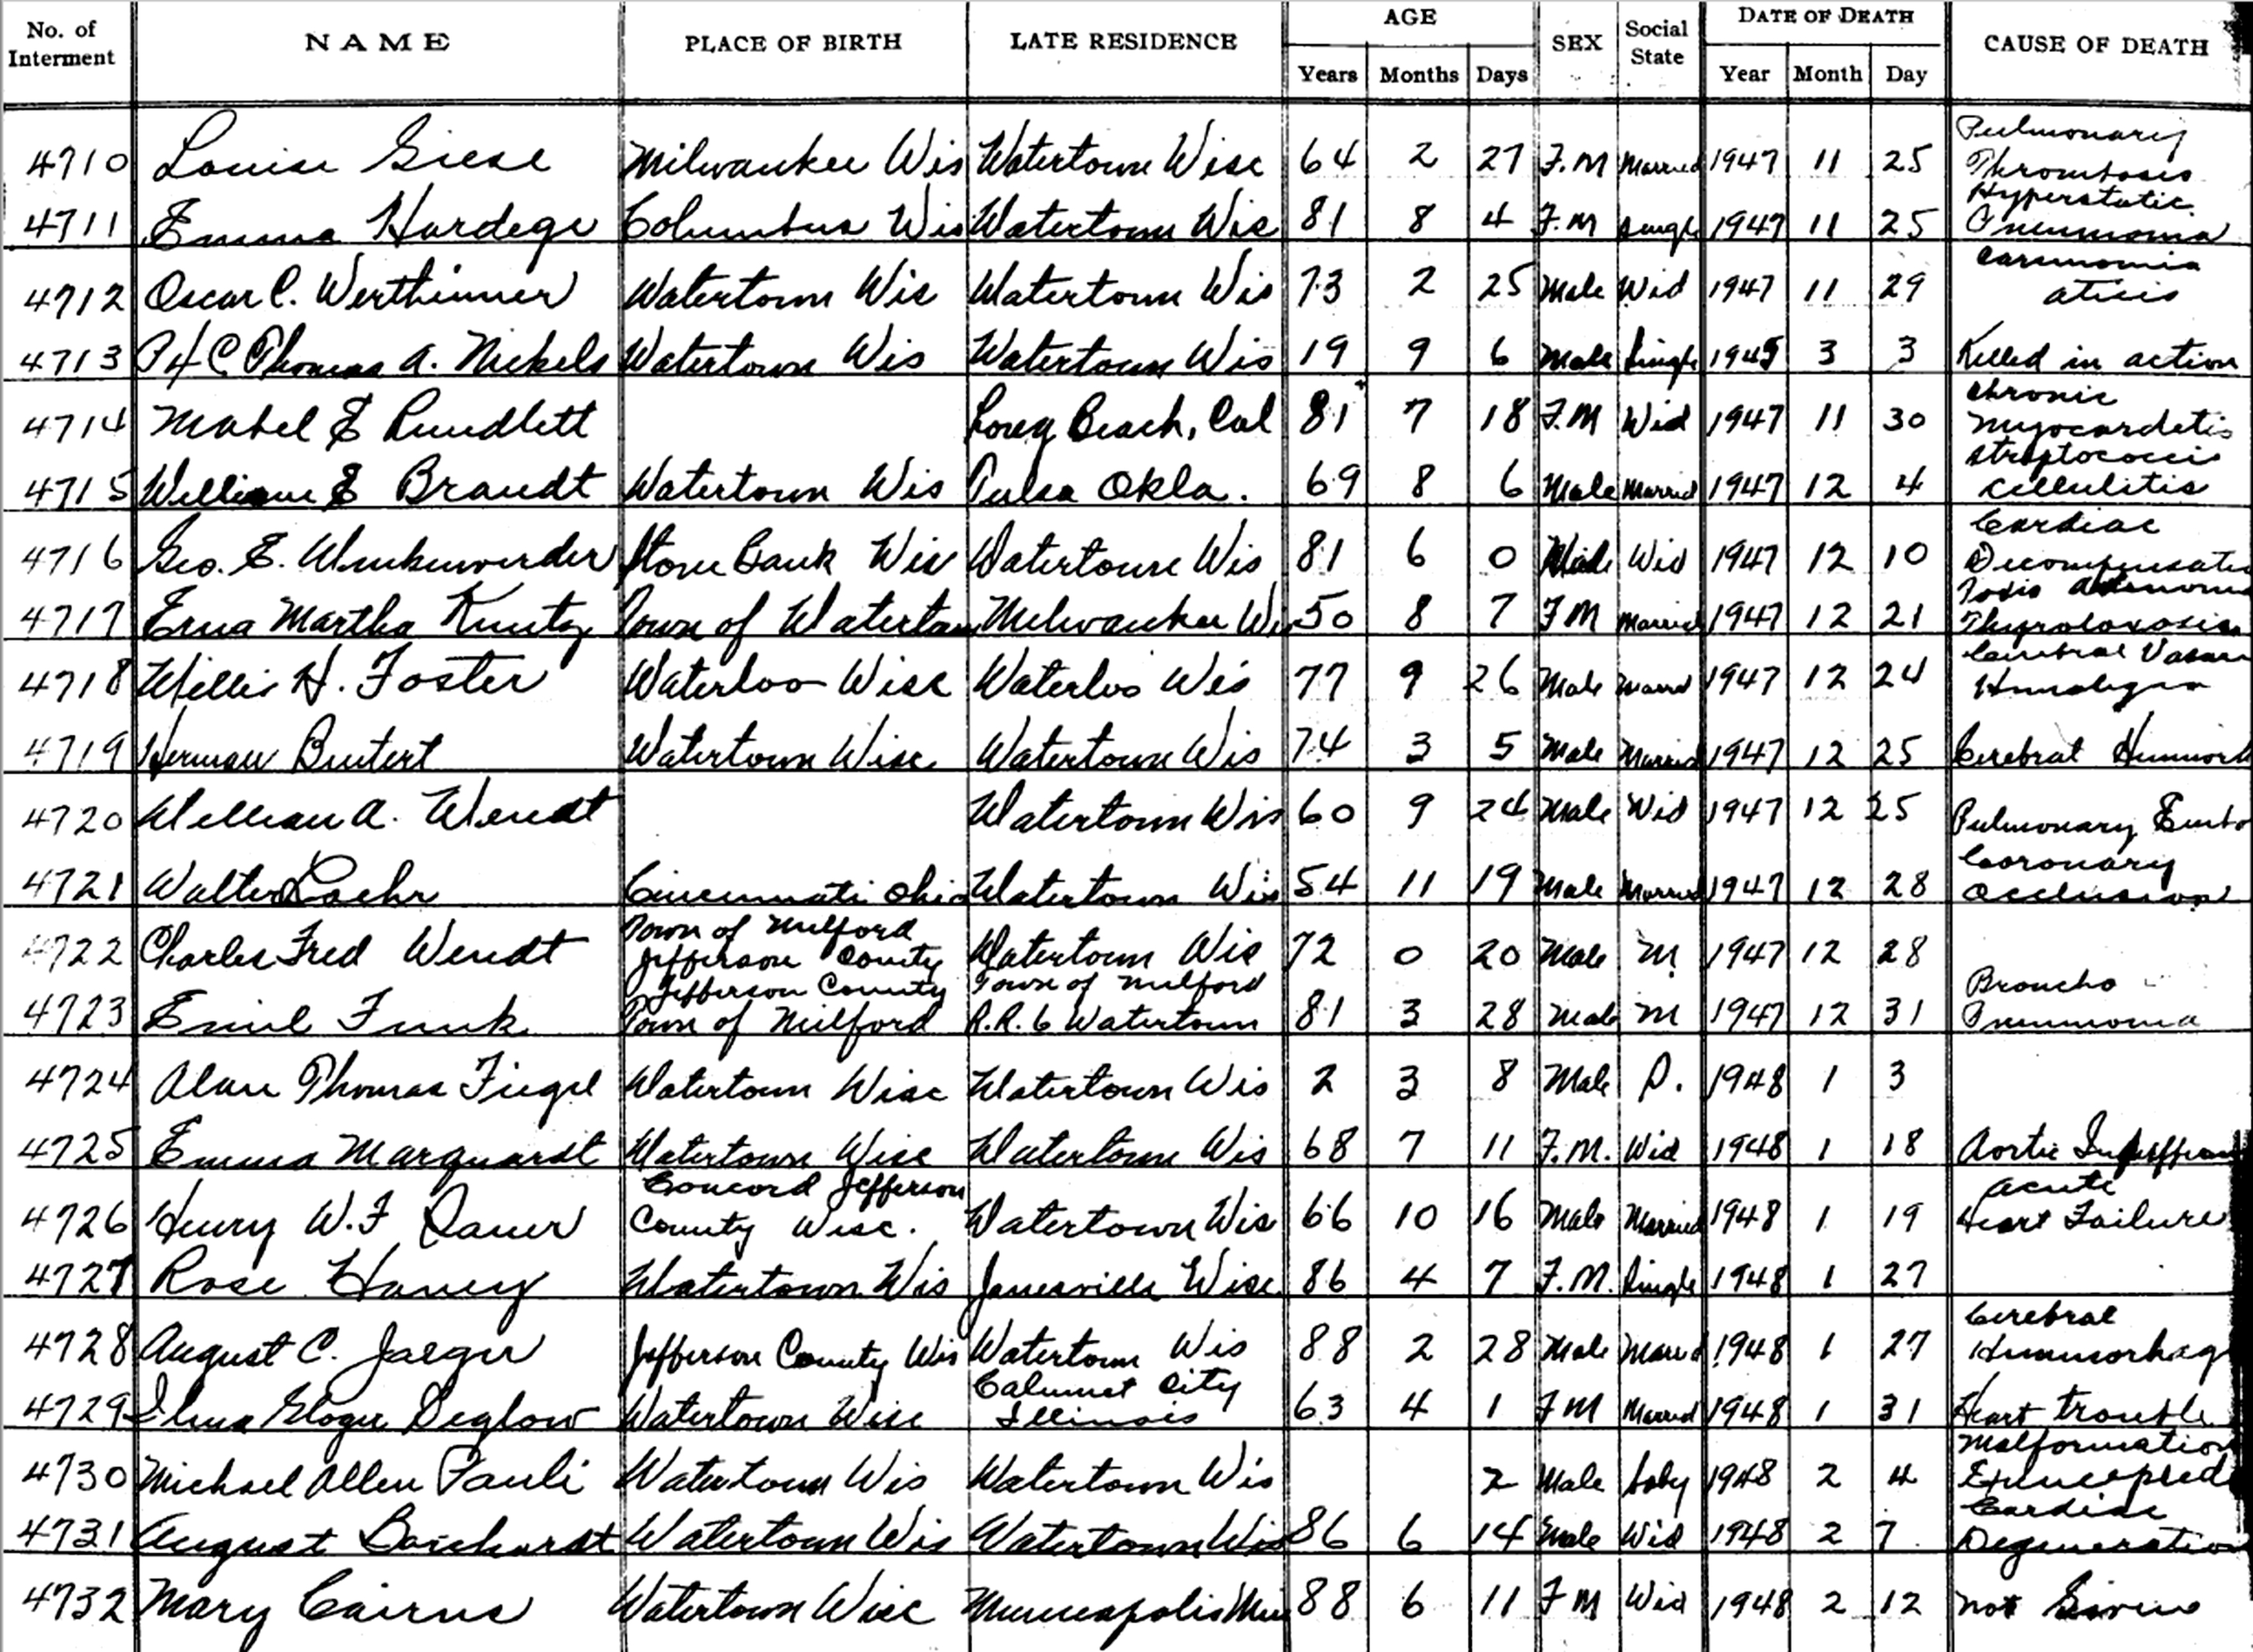 No. of Interment NAME PLACE OF BIRTH LATE RESIDENCE AGE SEX Social State DATE OF DEATH CAUSE OF DEATH
Years Months Days Year Month Day
4710 Louise Giese Milwaukee Wis Watertown Wisc 64 2 27 F.M Married 1947 11 25 Pulmonary Thrombosis
4711 Emma Hardege Columbus Wis Watertown Wis 81 8 4 F.M Single 1947 11 25 Hyperstatic Pneumonia
4712 Oscar C. Werthimer Watertown Wis Watertown Wis 73 2 25 Male Wid 1947 11 29
4713 Thomas A. Nickels Watertown Wis Watertown Wis 19 9 6 Male Single 1945 3 3 Killed in action
4714 Mabel E Rundlett Long Beach, Cal 81 7 18 F.M Wid 1947 11 30 Chronic Myocardetis
4715 William E Brandt Watertown Wis Tulsa Okla. 69 8 6 Male Married 1947 12 4 Streptococcis Cellulitis
4716 Geo. E. Winkenwerder Stone Bank Wis Watertown Wis 81 6 0 Male Wid 1947 12 10 Cardiac
4717 Erna Martha Kuntz Town of Watertown Milwaukee Wis 50 8 7 F M Married 1947 12 21
4718 Willis H. Foster Waterloo Wisc Waterloo Wis 77 9 26 Male Married 1947 12 24
4719 Herman Butert Watertown Wisc Watertown Wis 74 3 5 Male Married 1947 12 25 Cerebral
4720 William A. Wendt Watertown Wis 60 9 24 Male Wid 1947 12 25 Pulmonary
4721 Walter Loehr Cincinnati Ohio Watertown Wis 54 11 19 Male Married 1947 12 28 Coronary Occlusion
4722 Charles Fred Wendt Town of Milford Jefferson County Watertown Wis 72 0 20 Male M 1947 12 28
4723 Emil Funk Jefferson County Town of Milford Town of Milford R.R. 6 Watertown 81 3 28 Male M 1947 12 31 Broncho Pneumonia
4724 Alan Thomas Fiegel Watertown Wisc Watertown Wis 2 3 8 Male 1948 1 3
4725 Emma Marquardt Watertown Wisc Watertown Wis 68 7 11 F.M. Wid 1948 1 18 Aortic
4726 Henry W.F Bauer Concord Jefferson County Wisc. Watertown Wis 66 10 16 Male Married 1948 1 19 Acute Heart Failure
4727 Rose Haney Watertown Wis Janesville Wisc 86 4 7 F.M. Single 1948 1 27
4728 August C. Jaeger Jefferson County Wis Watertown Wis 88 2 28 Male Married 1948 1 27 Cerebral
4729 Deglow Watertown Wisc Calumet City Illinois 63 4 1 F M Married 1948 1 31 Heart trouble
4730 Michael Allen Pauli Watertown Wis Watertown Wis 2 Male baby 1948 2 4 Malformation
4731 August Borchardt Watertown Wis Watertown Wis 86 6 14 Male Wid 1948 2 7 Cardiac Degeneration
4732 Mary Cairns Watertown Wisc Minneapolis Min 88 6 11 F M Wid 1948 2 12 not Given